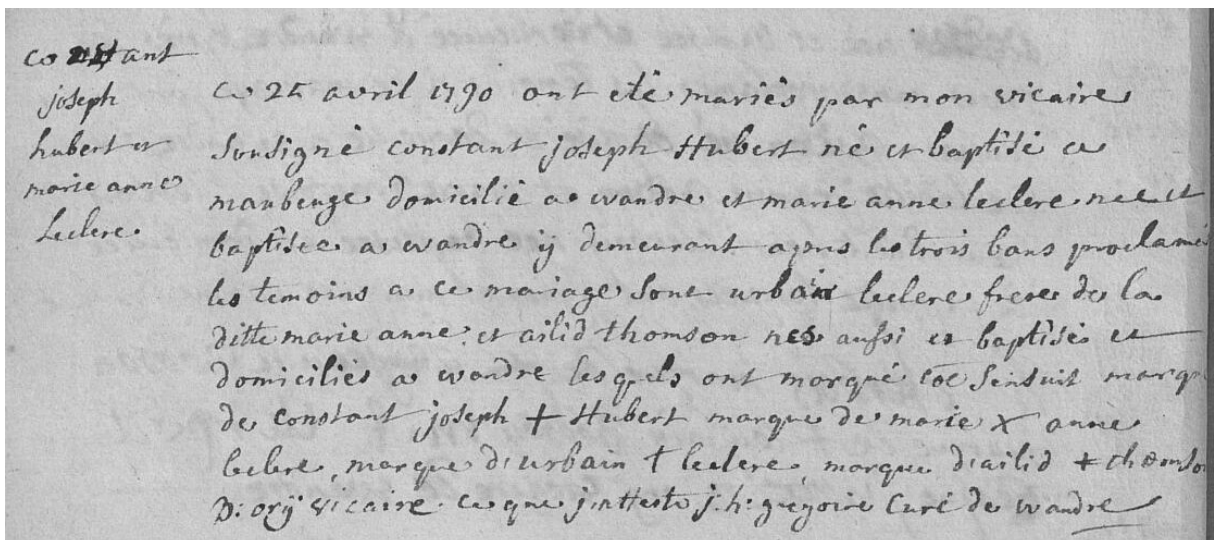 constant
joseph
hubert et
marie anne
Leclere.
Ce 25 avril 1790 ont eté mariés par mon vicaire
Sousigné constant joseph Hubert né et baptisé a
maubeuge domicilié a wandre et marie anne leclere neé et
baptiseé a wandre ij demeurant apres les trois bans proclamé
les temoins a ce mariage sont urbain leclere frere de la
ditte marie anne et ailid thomson nes aussi et baptisés et
domicilies a wandre lesquels ont morqué cõe sensuit marque
de constant joseph + Hubert marque de marie X anne
leclere, marque d'urbain + leclere, marque d'ailid + thomson
D: orij vicaire. ce que j'atteste j: h: gregoire Curé de wandre